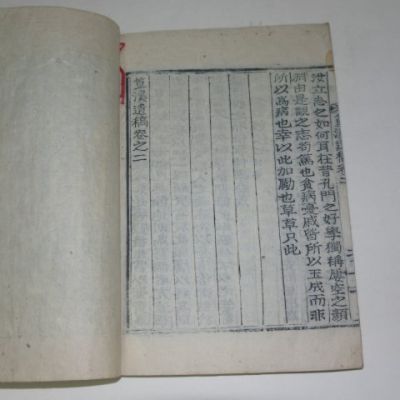 溪遺稿卷二
汝立志之如何耳在昔孔門之好學獨稱屢空之顏
淵由是觀之志苟篤也貧病憂戚皆所以玉成而非
所以爲病也幸以此加勵也草草只此
溪遺稿卷之二